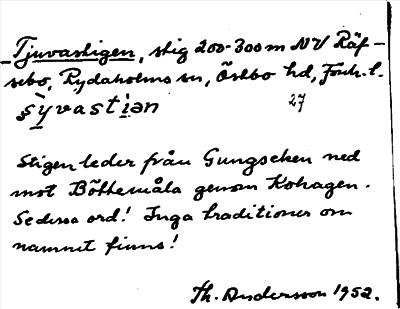 Tjuvastigen, stig 200-300 m NV Räf-
sebo, Rydaholms sn, Östbo hd, Jönk. l.
ṣy̱vasti̱ən 27
Stigen leder från Gungseken ned
mot Böttemåla genom Kohagen.
Se dessa ord! Inga traditioner om
namnet finns!
Th. Andersson 1952.